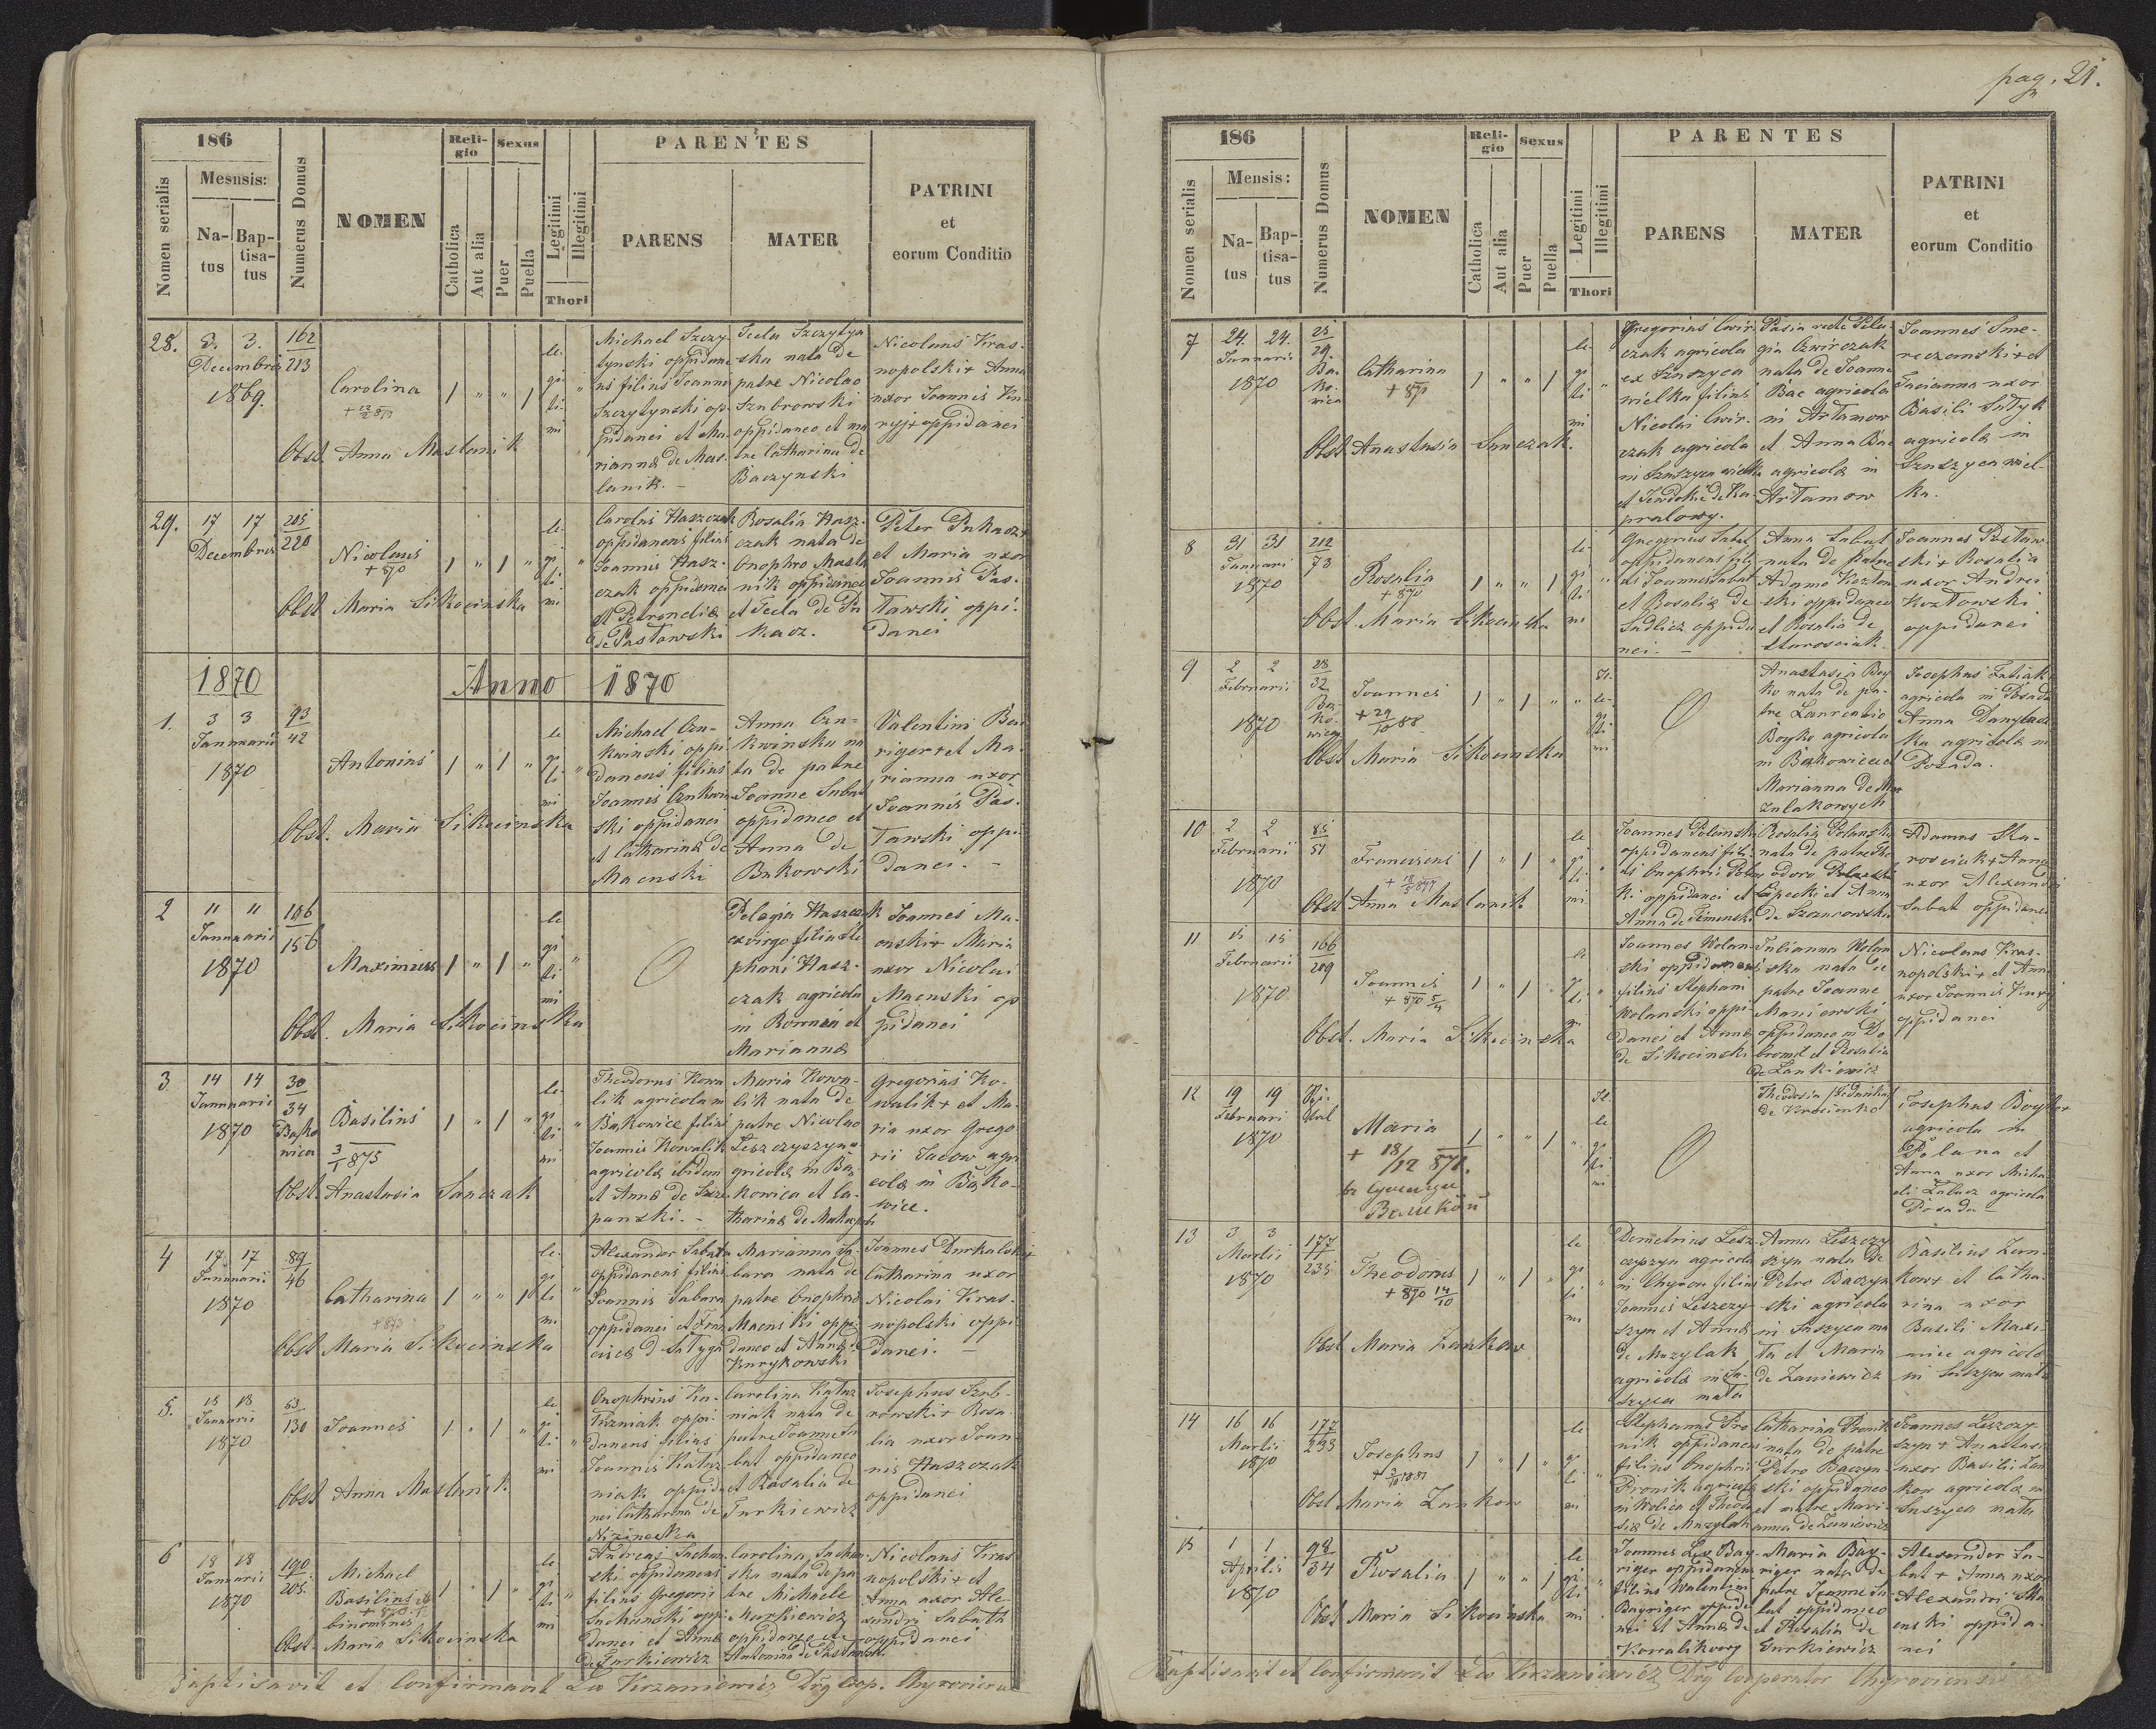 pag. 21.
186
Nomen serialis
Mesnsis:
Na-
tus
Bap-
tisa-
tus
Numerus Domus
NOMEN
Reli-
gio
Catholica
Aut alia
Sexus
Puer
Puella
Legitimi
Illegitimi
Thori
PARENTES
PARENS
MATER
PATRINI
et
eorum Conditio
28.
3. 3.
Decembris
1869.
162
213
Carolina
Obst. Anna Maslanik
le-
gi
ti-
mi
Michael Szczy-
tynski oppidane
us filius Joannis
Szczytynski op-
pidanei et Ma-
rianna de Mas-
lanik. -
Tecla Szczytyn
ska nata de
patre Nicolao
oppidaneo et ma
tre Catharina de
Baczynski
Nicolaus Kras-
nopolski + Anna
uxor Joannis
oppidanei
29.
17 17
Decembris
205
220
Nicolaus
+ 870
Obst Maria Sikocinska
le-
gi
ti
mi
Carolus Haszczak
oppidaneus filius
Joannis Hasz-
czak oppidanei
et Petronella
de Pastawski
Rosalia Hasz-
czak nata de
Onophro Masla
nik oppidaneo
et Tecla de Pu
kacz.
Peter Pukacz+
et Maria uxor
Joannis Pas-
tawski oppi-
danei
1870
Anno 1870
1.
3 3
Januarii
1870
93
42
Antonius
Obst. Maria Sikocinska
le
gi
ti
mi
Michael
oppi
daneus filius
Joannis
ski oppidanei
et Catharina de
Macnski
Anna
na
ta de patre
Joanne Sabat
oppidaneo et
Anna de
Bukowski
Valentini
et Ma-
rianna uxor
Joannis Pas-
tawski oppi-
danei. -
2
11 11
Januarii
1870
106
156
Maximus
Obst. Maria Sikocinska
le
gi
ti
mi
Pelagia Haszczak
exvirgo filia Ste
phani Hasz-
czak agricola
in et
Marianna
Joannes Ma-
cnski + Maria
uxor Nicolai
Macnski op
pidanei
3
14 14
Januarii
1870
30
34
Bąko
wica
Basilius
3/1 875
Obst. Anastasia Sanczak
le-
gi
ti
mi
Theodorus Kowa
lik agricola in
Bąkowice filius
Joannis Kowalik
agricola ibidem
et Anna de Szcze
panski. -
Maria Kowa-
lik nata de
patre Nicolao
Leszczyszyn a
gricola in Bą
kowica et Ca-
tharina de
Gregorius Ko-
walik + et Ma-
ria uxor Grego
rii Jacow agri
cola in Bąko-
wice.
4
17 17
Januarii
1870
89
46
Catharina
+ 873
Obst Maria Sikocinska
le-
gi
ti
mi
Alexander
oppidaneus filius
Joannis
oppidanei et Fran
cisca
Marianna
nata de
patre Onophrio
Macnski oppi
daneo et Anna
Kurykowski
Joannes Durkalski
Catharina uxor
Nicolai Kras-
nopolski oppi
danei. -
5.
18 18
Januarii
1870
53
130
Joannes
Obst Anna Maslanik
le
gi
ti
mi
Onophrius Ka-
tuzniak oppi-
daneus filius
Joannis Katuz
niak oppida
nei Catharina de
Carolina Katuz
niak nata de
patre Joanne Sa
bat oppidaneo
et Rosalia de
Turkiewicz
Josephus Szub-
rowski + Rosa-
lia uxor Joan-
nis Haszczak
oppidanei
6
18 18
Januarii
1870
190
205.
Michael
Basilius
binominus
Obst. Maria Sikocinska
le
gi
ti
mi
Andreas Suchan-
ski oppidaneus
filius Gregorii
Suchanski oppi-
danei et Anna
de Turkiewicz
Carolina Suchan-
ska nata de pa
tre Michaele
Markiewicz
oppidaneo et
Antonina de Pastawski
Nicolaus Kras
nopolski + et
Anna uxor Ale-
xandri Sabath
oppidanei
Baptisavit et Confirmavit Leo Krzaniewicz Coop. Chyroviensis
186
Nomen serialis
Mensis:
Na-
tus
Bap-
tisa-
tus
Numerus Domus
NOMEN
Reli-
gio
Catholica
Aut alia
Sexus
Puer
Puella
Legitimi
Illegitimi
Thori
PARENTES
PARENS
MATER
PATRINI
et
eorum Conditio
7
24. 24.
Januarii
1870
25
29.
Ba-
ko-
wica
Catharina
+ 871
Obst Anastasia Sanczak.
le-
gi
ti
mi
Gregorius Cwir-
czak agricola
ex Suszyca
wielka filius
Nicolai Cwir-
czak agricola
in Suszyca wielka
et Jewdokia de Ka-
pralowy.
Pasia recte Pela-
gia Czwirczak
nata de Joanne
Bac agricola
in Artamow
et Anna Bac
agricola in
Artamow
Joannes Sme-
reczanski + et
Tacianna uxor
Basili Sutyk
agricola in
Suszyca wiel-
ka.
8
31 31
Januarii
1870
212
73
Rosalia
+ 870
Obst. Maria Sikocinska
le-
gi
ti
mi
Gregorius Sabat
oppidaneus fili-
us Joannis Sabat
et Rosalia de
Sadlicz oppida
nei. -
Anna Sabat
nata de patre
Adamo Kozłow
ski oppidaneo
et Rosalia de
Starosciak.
Joannes Pastaw-
ski + Rosalia
uxor Andrei
Kozłowski
oppidanei
9
2 2
Februarii
1870
28
32
Ba-
ko-
wica
Joannes
+ 29/10 88
Obst Maria Sikocinska
Il-
le-
gi
ti-
mi
Anastasia Boy
ko nata de pa-
tre Laurentio
Boyko agricola
in Bąkowice et
Marianna de
Josephus
agricola in Posada
Anna
ka agricola in
Posada.
10
2 2
Februarii
1870
85
51
Franciscus
+ 18/5 877
Obst Anna Maslanik
le
gi
ti
mi
Joannes Polanski
oppidaneus fili-
us Onophrii Polans
ki oppidanei et
Anna de
Rosalia Polanska
nata de patre The
odoro
Lipecki et Anna
de Szczurowska
Adamus Sta-
rosciak + Anna
uxor Alexandri
Sabat oppidanei
11
15 15
Februarii
1870
166
209
Joannes
+ 870 5/4
Obst. Maria Sikocinska
le
gi
ti
Joannes Wolan-
ski oppidaneus
filius Stephani
Wolanski oppi-
danei et Anna
de Sikocinski
Julianna Wolan
ska nata de
patre Joanne
oppidaneo in Do
bromil et Rosalia
Nicolaus Kras-
nopolski + et Anna
uxor Joannis
oppidanei
12
19 19
Februarii
1870
Maria
+ 18/12 871.
Il-
le
gi
ti
mi
Theodosia
de Krościenko
Josephus Boyko+
agricola in
Polana et
Anna uxor Micha
eli agricola
Posada
13
3 3
Martii
1870
177
235
Theodorus
+ 870 14/10
Obst Maria Zankow
le
gi
ti
mi
Demetrius Lesz-
czyszyn agricola
in Chyrow filius
Joannis Leszczy-
szyn et Anna
de Mazylak
agricola in Su-
szyca mała
Anna Leszczy
szyn nata de
Petro Baczyn
ski agricola
in Suszyca ma
ła et Maria
de Zaniewicz
Basilius Zan-
kow + et Catha-
rina uxor
Basili Maxi-
mice agricola
in Suszyca mała
14
16 16
Martii
1870
177
233
Josephus
Obst Maria Zankow
le-
gi
ti
mi
Stephanus Pro
nik oppidaneus
filius Onophrii
Pronik agricola
in Wolica et Theodo
sia de Mazylak
Catharina Pronik
nata de patre
Petro Baczyn-
ski oppidaneo
et matre Mari-
anna de Zaniewicz
Joannes Leszczy-
szyn + Anastasia
uxor Basilii Zan
kow agricola in
Suszyca mała
15
1 1
Aprilis
1870
98
34
Rosalia
Obst Maria Sikocinska
le
gi
ti
mi
Joannes Leo Bay-
riger oppidaneus
filius Walentini
Bayriger oppida
nei et Anna de
Kowalikowy
Maria Bay-
riger nata de
patre Joanne Sa
bat oppidaneo
et Rosalia de
Turkiewicz
Alexander Sa-
bat + Anna uxor
Alexandri Ma
cnski oppida-
nei
Baptisavit et Confirmavit Leo Krzaniewicz Cooperator Chyroviensis